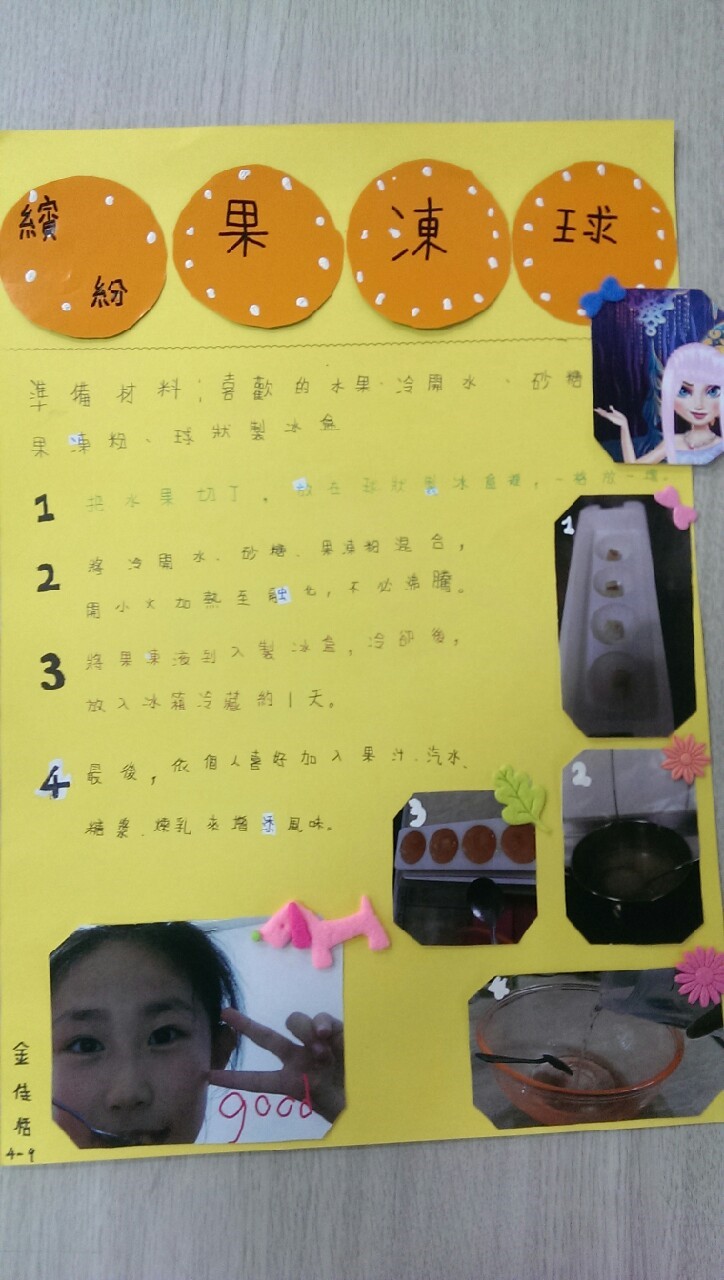 繽紛果凍球
準備材料；喜歡的水果、冷開水、砂糖
果凍粉、球狀製冰盒
1 把水果切丁，放在球狀製冰盒裡，一格放一塊。
2 將冷開水、砂糖、果凍粉混合，
開小火加熱至融化，不必沸騰。
3 將果凍液到入製冰盒，冷卻後，
放入冰箱冷藏約1天。
4 最後，依個人喜好加入果汁、汽水、
糖漿、煉乳來增添風味。
1
2
3
4
good
金佳恬
4-9